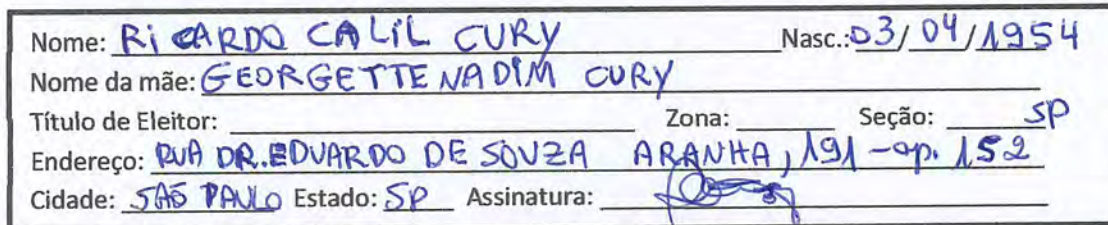 Nome: RICARDO CALIL CURY Nasc.: 03/04/1954
Nome da mãe: GEORGETTE NADIM CURY
Título de Eleitor: Zona: Seção: SP
Endereço: RUA DR. EDUARDO DE SOUZA ARANHA, 191 - ap. 152
Cidade: SÃO PAULO Estado: SP Assinatura: